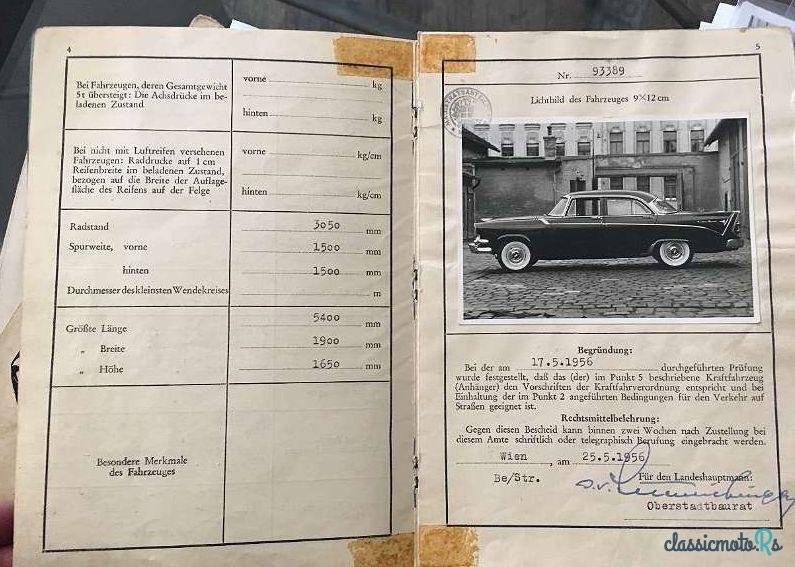 4
Bei Fahrzeugen, deren Gesamtgewicht
5 t übersteigt: Die Achsdrücke im be-
ladenen Zustand
vorne kg
hinten kg
Bei nicht mit Luftreifen versehenen
Fahrzeugen: Raddrucke auf 1 cm
Reifenbreite im beladenen Zustand,
bezogen auf die Breite der Auflage-
fläche des Reifens auf der Felge
vorne kg/cm
hinten kg/cm
Radstand 3050 mm
Spurweite, vorne 1500 mm
hinten 1500 mm
Durchmesser des kleinsten Wendekreises m
Größte Länge 5400 mm
„ Breite 1900 mm
„ Höhe 1650 mm
Besondere Merkmale
des Fahrzeuges
5
Nr. 93389
Lichtbild des Fahrzeuges 9×12 cm
Begründung:
Bei der am 17.5.1956 durchgeführten Prüfung
wurde festgestellt, daß das (der) im Punkt 5 beschriebene Kraftfahrzeug
(Anhänger) den Vorschriften der Kraftfahrverordnung entspricht und bei
Einhaltung der im Punkt 2 angeführten Bedingungen für den Verkehr auf
Straßen geeignet ist.
Rechtsmittelbelehrung:
Gegen diesen Bescheid kann binnen zwei Wochen nach Zustellung bei
diesem Amte schriftlich oder telegraphisch Berufung eingebracht werden.
Wien, am 25.5.1956
Be/Str. Für den Landeshauptmann:
Oberstadtbaurat
classicmoto.Rs